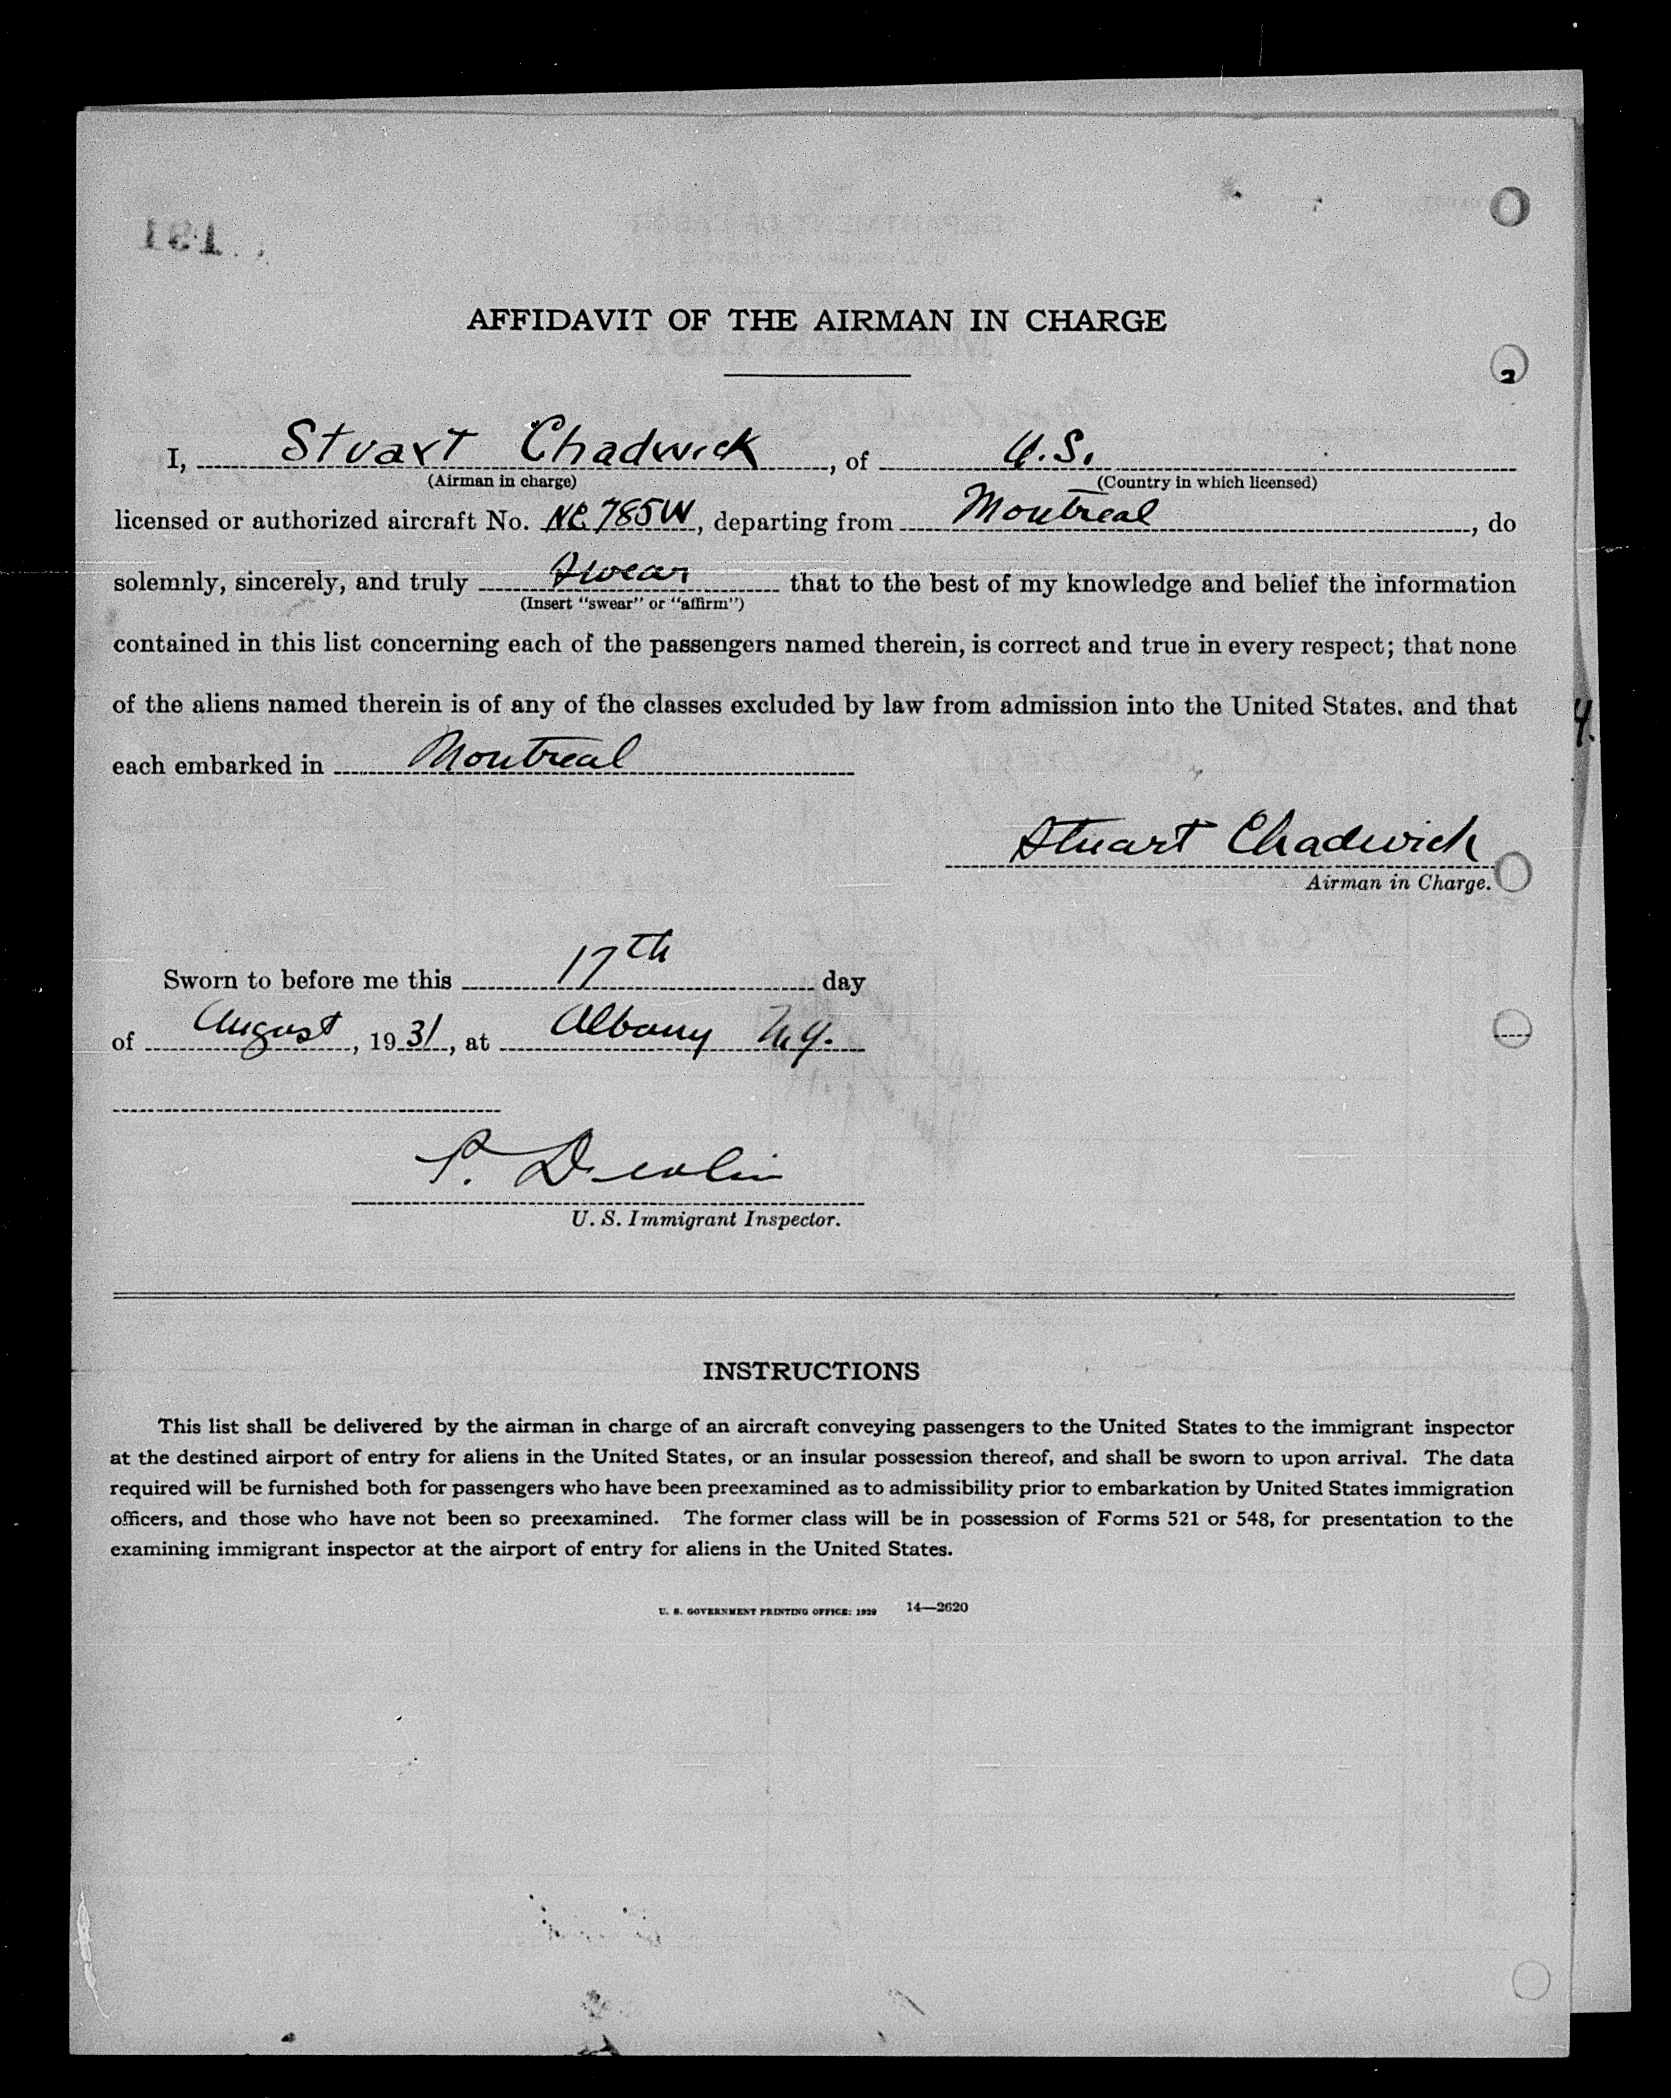 191
AFFIDAVIT OF THE AIRMAN IN CHARGE
2
I, Stuart Chadwick, of U.S.
(Airman in charge) (Country in which licensed)
licensed or authorized aircraft No. NC 785W, departing from Montreal, do
solemnly, sincerely, and truly swear that to the best of my knowledge and belief the information
(Insert "swear" or "affirm")
contained in this list concerning each of the passengers named therein, is correct and true in every respect; that none
of the aliens named therein is of any of the classes excluded by law from admission into the United States. and that
4.
each embarked in Montreal
Stuart Chadwick
Airman in Charge.
Sworn to before me this 17th day
of August, 1931, at Albany N.Y.
P. Devlin
U. S. Immigrant Inspector.
INSTRUCTIONS
This list shall be delivered by the airman in charge of an aircraft conveying passengers to the United States to the immigrant inspector
at the destined airport of entry for aliens in the United States, or an insular possession thereof, and shall be sworn to upon arrival. The data
required will be furnished both for passengers who have been preexamined as to admissibility prior to embarkation by United States immigration
officers, and those who have not been so preexamined. The former class will be in possession of Forms 521 or 548, for presentation to the
examining immigrant inspector at the airport of entry for aliens in the United States.
U. S. GOVERNMENT PRINTING OFFICE: 1929 14—2620